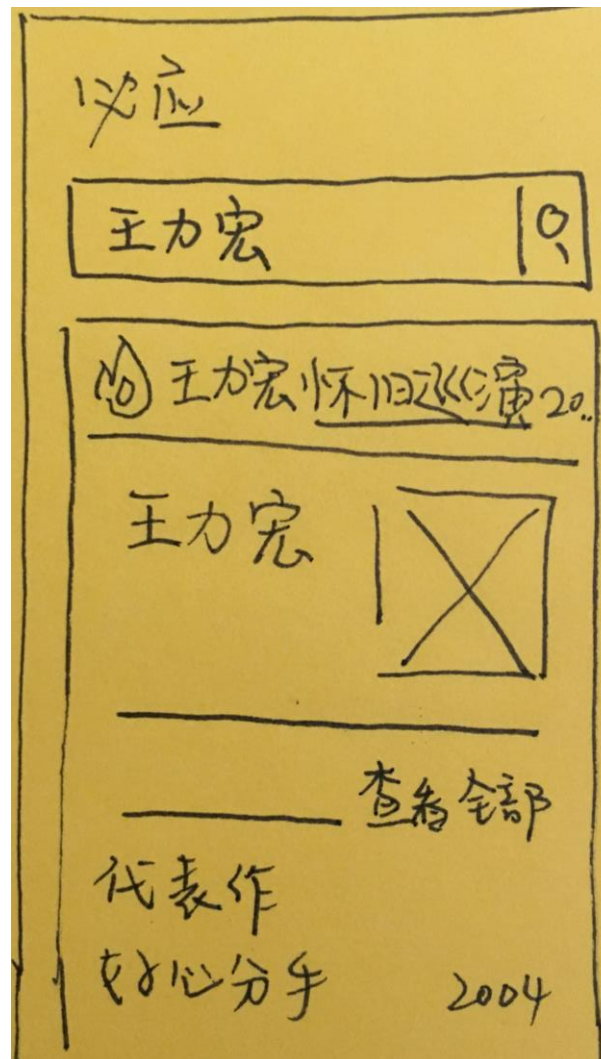 必应
王力宏
王力宏怀旧巡演20..
王力宏
查看全部
代表作
好心分手 2004